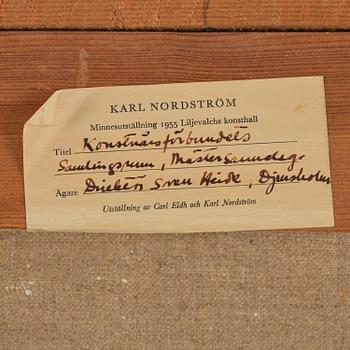 KARL NORDSTRÖM
Minnesutställning 1955 Liljevalchs konsthall
Titel Konstnärsförbundets
Samlingsrum, Mäster Samuelsg.
Ägare Direktör Sven Heide, Djursholm
Utställning av Carl Eldh och Karl Nordström